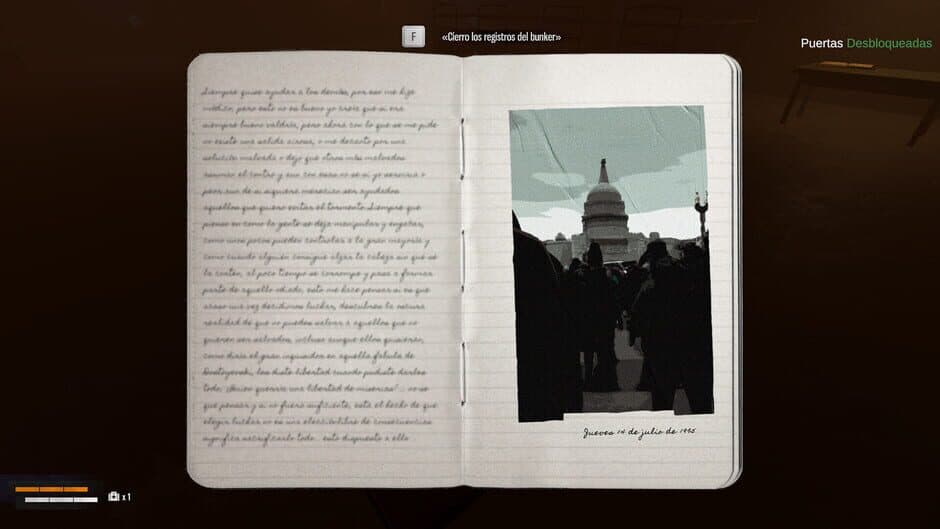 F «Cierro los registros del bunker»
Puertas Desbloqueadas
Siempre quise ayudar a los demás, por eso me hize
médico, pero esto no es bueno yo creía que si era
siempre bueno valdría, pero ahora con lo que se me pide
no existe una salida airosa, o me decanto por una
solución malvada o dejo que otros más malvados
asuman el control y aun con esas no se si yo serviría o
peor aun de si siquiera merecen ser ayudados
aquellos que quiero evitar el tormento. Siempre que
pienso en como la gente se deja manipular y engañar,
como unos pocos pueden controlar a la gran mayoría y
como cuando alguién consigue alzar la cabeza sin que se
la corten, al poco tiempo se corrompe y pasa a formar
parte de aquello odiado, esto me hace pensar si es que
acaso una vez decidimos luchar, descubres la oscura
realidad de que no puedes salvar a aquellos que no
quieren ser salvados, incluso aunque ellos quisieran,
como diría el gran inquisidor en aquella fabula de
Dostoyevski, les disto libertad cuando pudisto darles
todo. ¿Quien querría una libertad de miserias?... no se
que pensar y si no fuera suficiente, está el hecho de que
elegir luchar no es una elección libre de consecuencias
significa sacrificarlo todo... esto dispuesto a ello
Jueves 14 de julio de 1995
x1